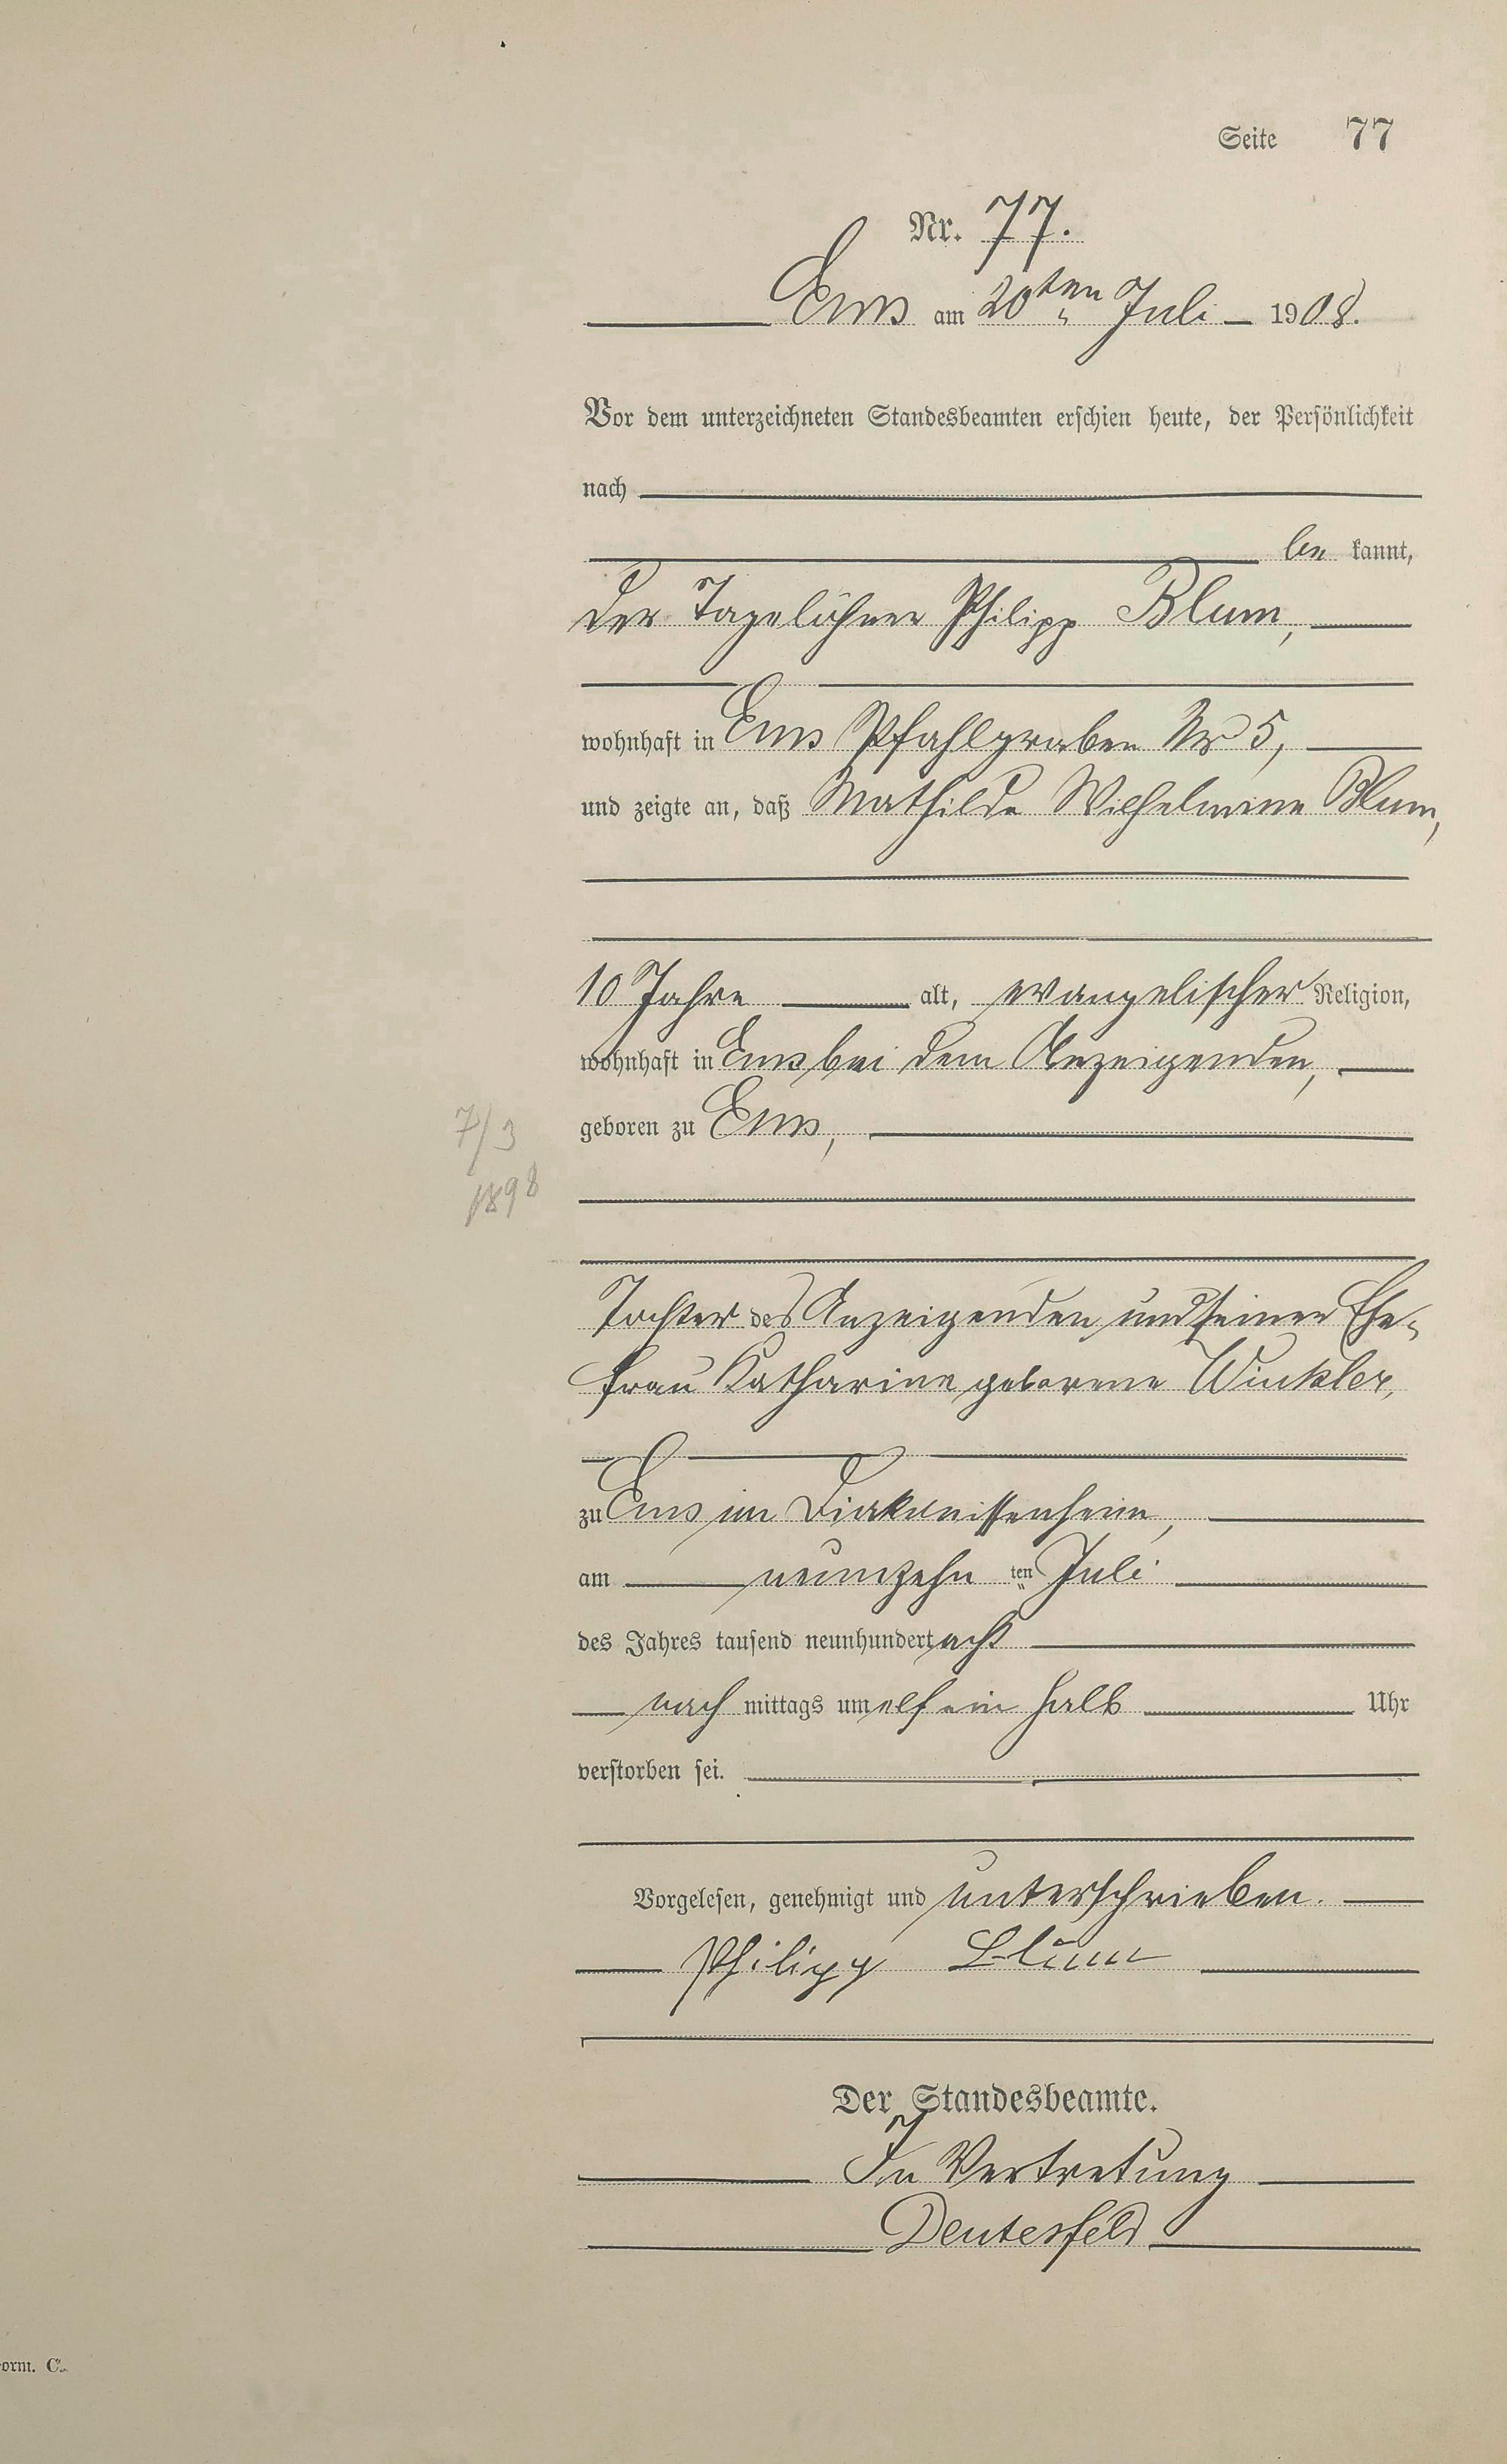 Seite 77
Nr. 77.
Ems am 20ten Juli 1908.
Vor dem unterzeichneten Standesbeamten erschien heute, der Persönlichkeit
nach
be kannt,
der Tagelöhner Philipp Blum,
wohnhaft in Ems Pfahlgraben Nr 5,
und zeigte an, daß Mathilde Wilhelmine Blum,
10 Jahre alt, evangelischer Religion,
wohnhaft in Ems bei dem Anzeigenden,
7/3
geboren zu Ems,
1898
Tochter des Anzeigenden und seiner Ehe-
frau Katharine geborene Winkler,
zu Ems im Diakonissenheim,
am neunzehn ten Juli
des Jahres tausend neunhundert acht
nach mittags um elf ein halb Uhr
verstorben sei.
Vorgelesen, genehmigt und unterschrieben.
Philipp Blum
Der Standesbeamte.
In Vertretung
Deutesfeld
orm. C.